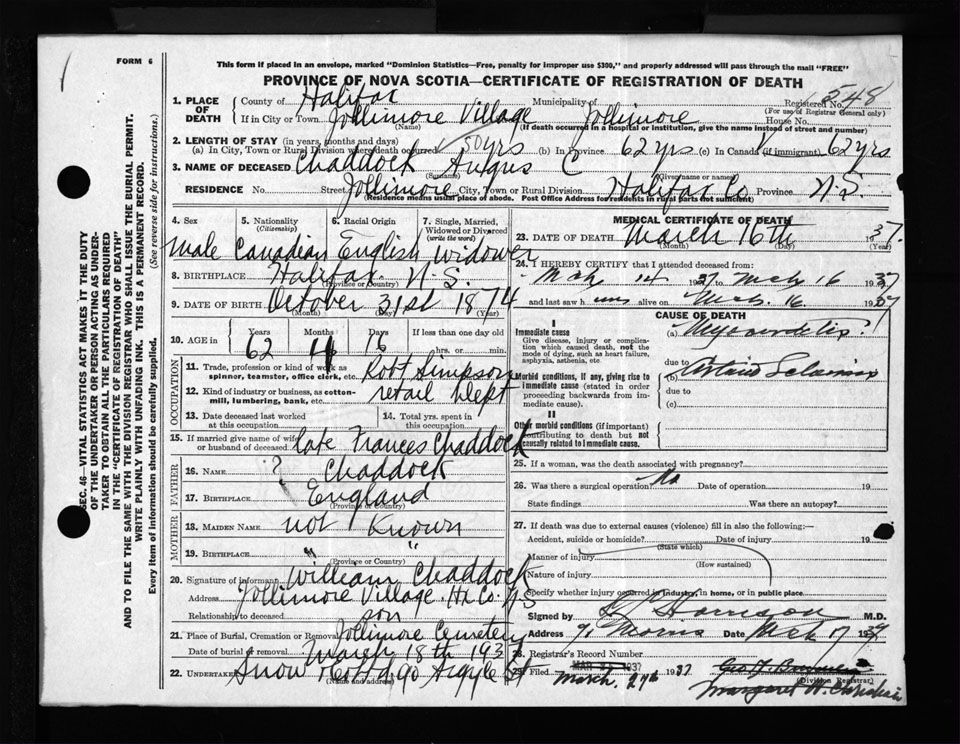 FORM 6
This form if placed in an envelope, marked "Dominion Statistics—Free, penalty for improper use $300," and properly addressed will pass through the mail "FREE"
PROVINCE OF NOVA SCOTIA—CERTIFICATE OF REGISTRATION OF DEATH
SEC. 46—VITAL STATISTICS ACT MAKES IT THE DUTY
OF THE UNDERTAKER OR PERSON ACTING AS UNDER-
TAKER TO OBTAIN ALL THE PARTICULARS REQUIRED
IN THE "CERTIFICATE OF REGISTRATION OF DEATH"
AND TO FILE THE SAME WITH THE DIVISION REGISTRAR WHO SHALL ISSUE THE BURIAL PERMIT.
WRITE PLAINLY WITH UNFADING INK. THIS IS A PERMANENT RECORD.
Every item of information should be carefully supplied. (See reverse side for instructions.)
1. PLACE OF DEATH County of Halifax Municipality of Registered No. 548
(For use of Registrar General only)
If in City or Town Jollimore Village Jollimore House No.
(Name) (If death occurred in a hospital or institution, give the name instead of street and number)
2. LENGTH OF STAY (in years, months and days)
(a) In City, Town or Rural Division where death occurred 50 yrs (b) In Province 62 yrs (c) In Canada (if immigrant) 62 yrs
3. NAME OF DECEASED Chaddock Angus C
(Surname) (Given name or names)
RESIDENCE No. Street Jollimore City, Town or Rural Division Halifax Co Province N.S.
(Residence means usual place of abode. Post Office Address for residents in rural parts not sufficient)
4. Sex 5. Nationality (Citizenship) 6. Racial Origin 7. Single, Married, Widowed or Divorced (write the word)
male Canadian English widower
8. BIRTHPLACE Halifax N.S.
(Province or Country)
9. DATE OF BIRTH October 31st 1874
(Month) (Day) (Year)
10. AGE in Years Months Days If less than one day old
62 4 16 hrs. or min.
OCCUPATION
11. Trade, profession or kind of work as spinner, teamster, office clerk, etc. Robt Simpson
12. Kind of industry or business, as cotton-mill, lumbering, bank, etc. retail Dept
13. Date deceased last worked at this occupation 14. Total yrs. spent in this occupation
15. If married give name of wife or husband of deceased late Frances Chaddock
FATHER
16. Name ? Chaddock
17. Birthplace England
(Province or Country)
MOTHER
18. Maiden Name not Known
19. Birthplace " "
(Province or Country)
20. Signature of informant William Chaddock
Address Jollimore Village Hx Co. N.S
Relationship to deceased son
21. Place of Burial, Cremation or Removal Jollimore Cemetery
Date of burial or removal March 18th 1937
22. UNDERTAKER Snow & Co Ltd 90 Argyle St
(Name and address)
MEDICAL CERTIFICATE OF DEATH
23. DATE OF DEATH March 16th 1937.
(Month) (Day) (Year)
24. I HEREBY CERTIFY that I attended deceased from:
Mch 14 1937 to Mch 16 1937
and last saw him alive on Mch. 16 1937
CAUSE OF DEATH
I
Immediate cause
Give disease, injury or complication which caused death, not the mode of dying, such as heart failure, asphyxia, asthenia, etc.
(a) Myocarditis
due to
Morbid conditions, if any, giving rise to immediate cause (stated in order proceeding backwards from immediate cause).
(b)
due to
(c)
II
Other morbid conditions (if important) contributing to death but not causally related to immediate cause.
25. If a woman, was the death associated with pregnancy?
26. Was there a surgical operation? No Date of operation 19
State findings Was there an autopsy?
27. If death was due to external causes (violence) fill in also the following:
Accident, suicide or homicide? Date of injury 19
(State which)
Manner of injury
(How sustained)
Nature of injury
Specify whether injury occurred in industry, in home, or in public place
Signed by Harrison M.D.
Address 91 Morris Date Mch 17 1937
28. Registrar's Record Number
29. Filed March 27th 1937
Margaret
(Division Registrar)